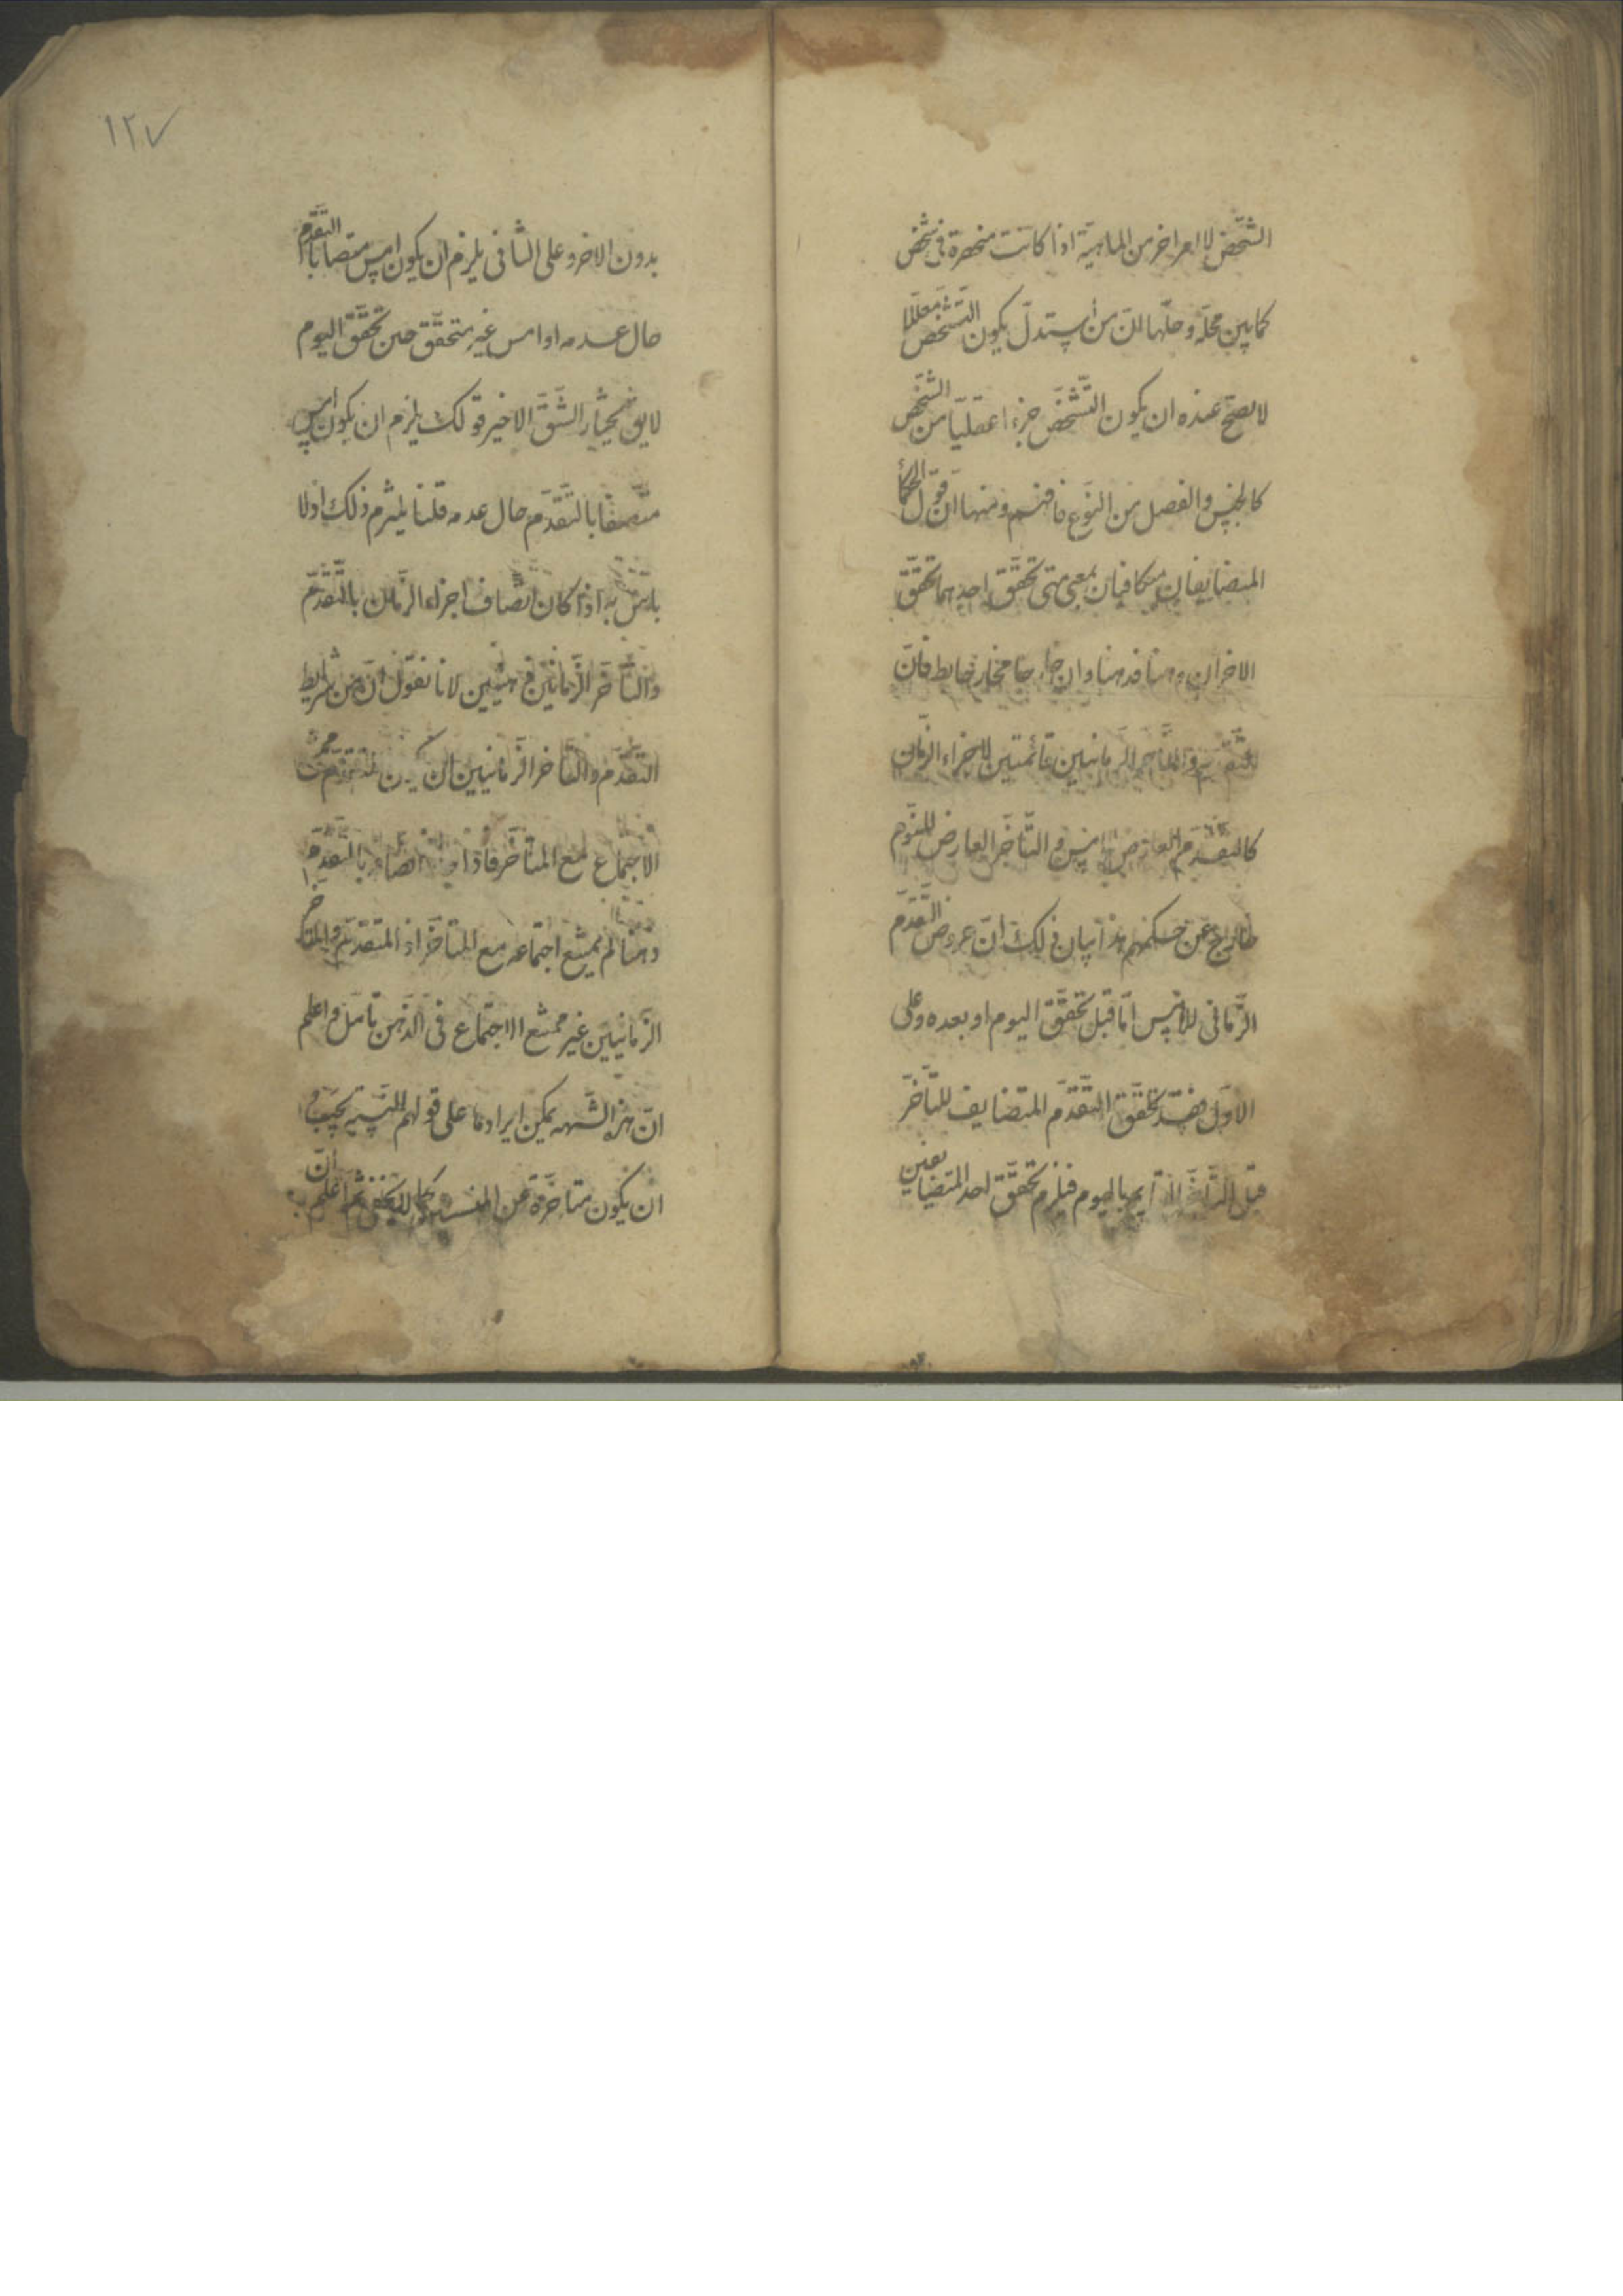 الشّخص لا امر اخر من الماهيّة اذا كانت منحصرة فى شخص
كما بين محلّه و حلّها انّ من استدلّ بكون التّشخّص معلّلا
لا يصحّ عنده ان يكون التّشخّص جزءا عقليّا من الشّخص
كالجنس والفصل من النّوع فافهم ومنها انّ قول الحكما
المتضايفان متكافيان بمعنى متى تحقّق احدهما تحقّق
الاخر ان ذهنا فذهنا وان خارجا فخارجا فانّ
التّقدّم والتّأخّر الزمانيين قائمتين لاجزاء الزّمان
كالتّقدّم العارض لامس والتّأخّر العارض لليوم
خارج عن حكمهم هذا بيان ذلك انّ عروض التّقدّم
الزّمانى للامس امّا قبل تحقّق اليوم او بعده وعلى
الاوّل فقد تحقّق التّقدّم المتضايف للتّأخّر
قبل التّأخّر القايم باليوم فيلزم تحقّق احد المتضايفين
١٢٧
بدون الاخر وعلى الثّانى يلزم ان يكون امس متصفا بالتّقدّم
حال عدمه اذ امس غير متحقّق حين تحقّق اليوم
لايق نختار الشّقّ الاخير قولك يلزم ان يكون امس
متّصفا بالتّقدّم حال عدمه قلنا يلتزم ذلك اذ لا
باس به اذا كان اتّصاف اجزاء الزّمان بالتّقدّم
والتّأخّر الزّمانيّين ذهنيّين لانا نقول انّ من شرايط
التقدّم والتّأخّر الزّمانيين ان يكون المتقدّم ممتنع
الاجتماع مع المتأخّر فاذا اتّصافه بالتّقدّم
ذهنا لم يمتنع اجتماعه مع المتأخّر اذ المتقدّم والمتأخّر
الزّمانيّين غير ممتنع الاجتماع فى الذّهن تأمّل واعلم
انّ هذا الشّبهه يمكن ايرادها على قولهم النّسبة يجب
ان يكون متأخّرة عن المنتسبين ثم اعلم انّ